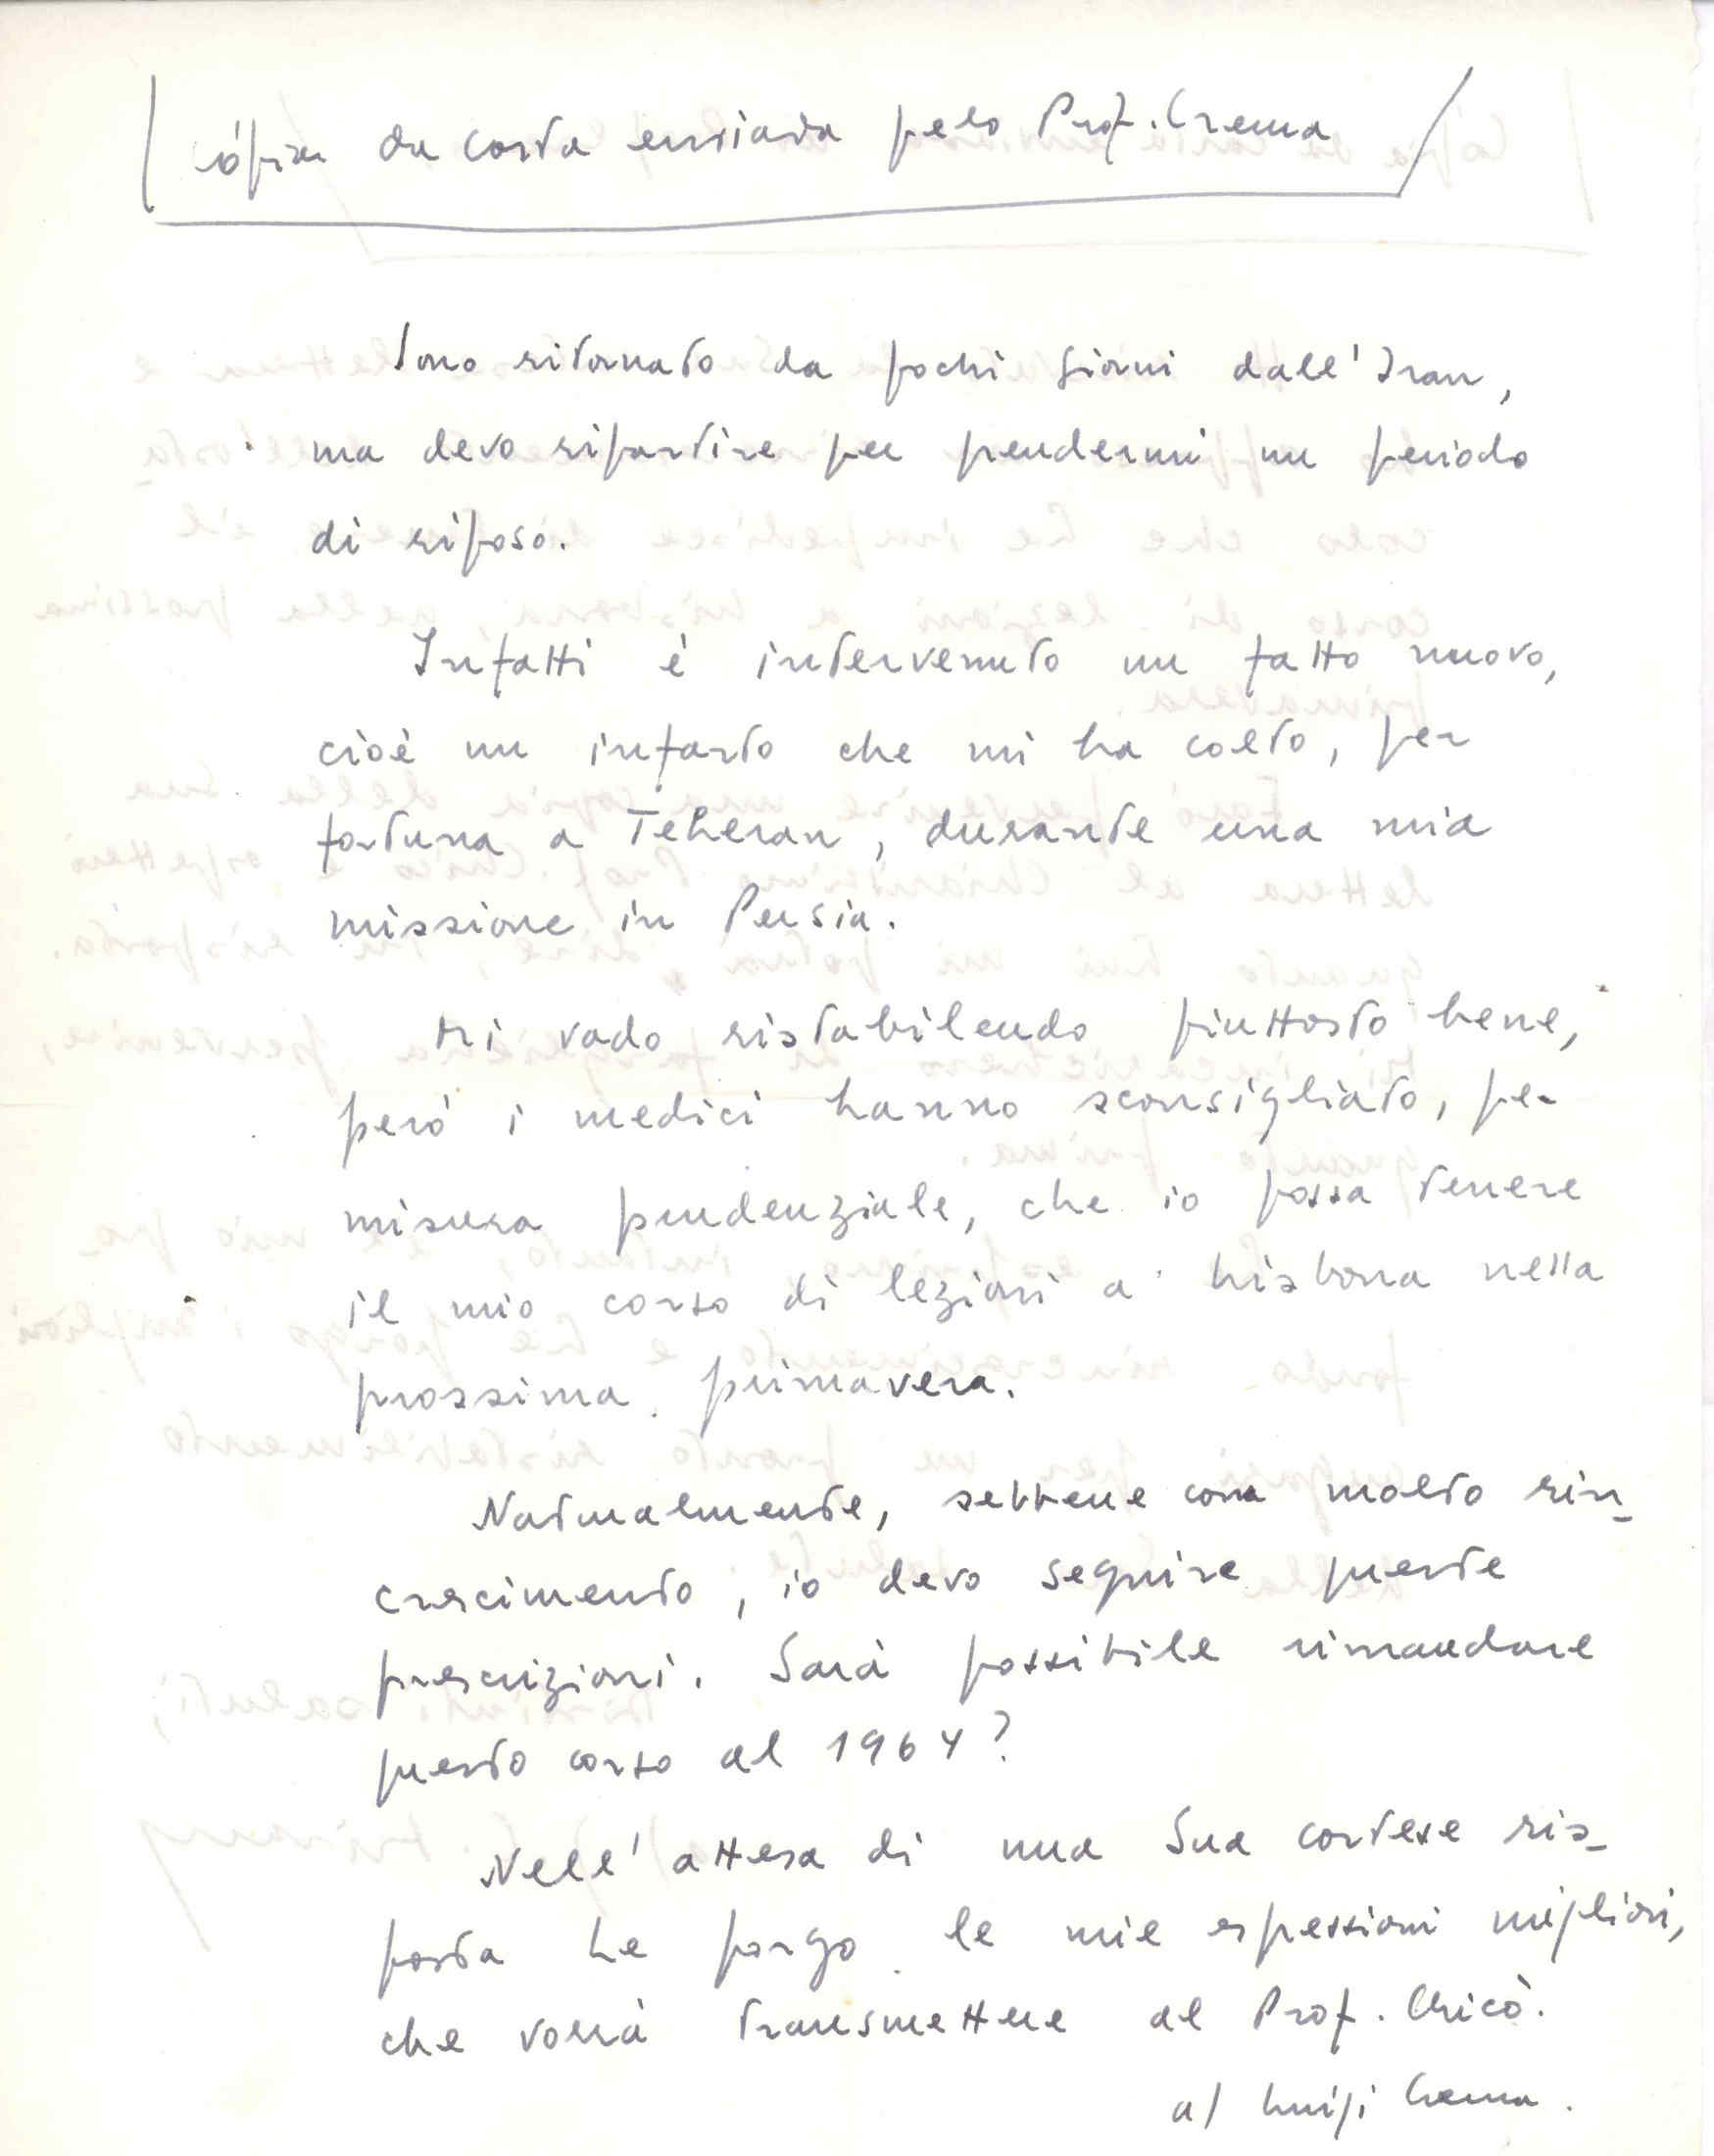 Cópia da carta enviada pelo Prof. Crema
Sono ritornato da pochi giorni dall'Iran,
ma devo ripartire per prendermi un periodo
di riposo.
Infatti è intervenuto un fatto nuovo,
cioè un infarto che mi ha colto, per
fortuna a Teheran, durante una mia
missione in Persia.
Mi vado ristabilendo piuttosto bene,
però i medici hanno sconsigliato, per
misura prudenziale, che io possa tenere
il mio corso di lezioni a Lisbona nella
prossima primavera.
Naturalmente, sebbene con molto rin-
crescimento, io devo seguire queste
prescrizioni. Sarà possibile rimandare
questo corso al 1964?
Nell'attesa di una Sua cortese ris-
posta Le porgo le mie espressioni migliori,
che vorrà transmettere al Prof. Chicò.
a/ Luigi Crema.